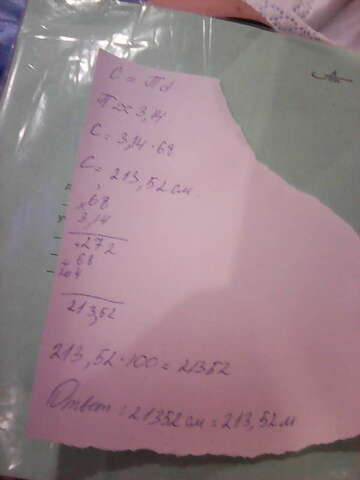 C = πd
π ≈ 3,14
C = 3,14 · 68
C = 213,52 см
× 68
3,14
+272
68
204
213,52
213,52 · 100 = 21352
Ответ = 21352 см = 213,52 м